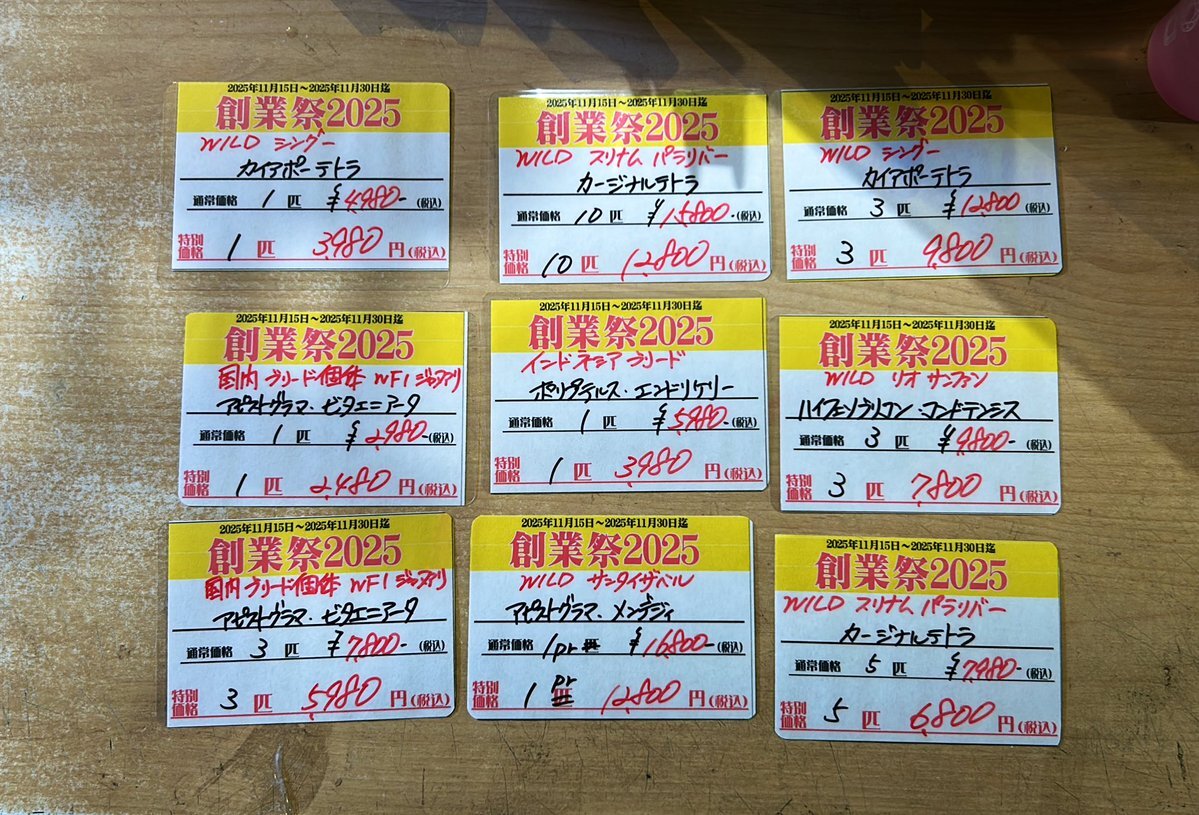 2025年11月15日～2025年11月30日迄
創業祭2025
WILD シングー
カイアポーテトラ
通常価格 1 匹 ¥4,980-(税込)
特別価格 1 匹 3,980 円(税込)
2025年11月15日～2025年11月30日迄
創業祭2025
WILD スリナム パラリバー
カージナルテトラ
通常価格 10 匹 ¥15,800-(税込)
特別価格 10 匹 12,800 円(税込)
2025年11月15日～2025年11月30日迄
創業祭2025
WILD シングー
カイアポーテトラ
通常価格 3 匹 ¥12,800-(税込)
特別価格 3 匹 9,800 円(税込)
2025年11月15日～2025年11月30日迄
創業祭2025
国内ブリード個体 WF1 ジャプアリ
アピストグラマ・ビタエニアータ
通常価格 1 匹 ¥2,980-(税込)
特別価格 1 匹 2,480 円(税込)
2025年11月15日～2025年11月30日迄
創業祭2025
インドネシア ブリード
ポリプテルス・エンドリケリー
通常価格 1 匹 ¥5,980-(税込)
特別価格 1 匹 3,980 円(税込)
2025年11月15日～2025年11月30日迄
創業祭2025
WILD リオ サンファン
ハイフェソブリコン・コンドテンシス
通常価格 3 匹 ¥9,800-(税込)
特別価格 3 匹 7,800 円(税込)
2025年11月15日～2025年11月30日迄
創業祭2025
国内ブリード個体 WF1 ジャプアリ
アピストグラマ・ビタエニアータ
通常価格 3 匹 ¥7,800-(税込)
特別価格 3 匹 5,980 円(税込)
2025年11月15日～2025年11月30日迄
創業祭2025
WILD サンタイザベル
アピストグラマ・メンデジィ
通常価格 1pr ¥16,800-(税込)
特別価格 1 pr 12,800 円(税込)
2025年11月15日～2025年11月30日迄
創業祭2025
WILD スリナム パラリバー
カージナルテトラ
通常価格 5 匹 ¥7,980-(税込)
特別価格 5 匹 6,800 円(税込)